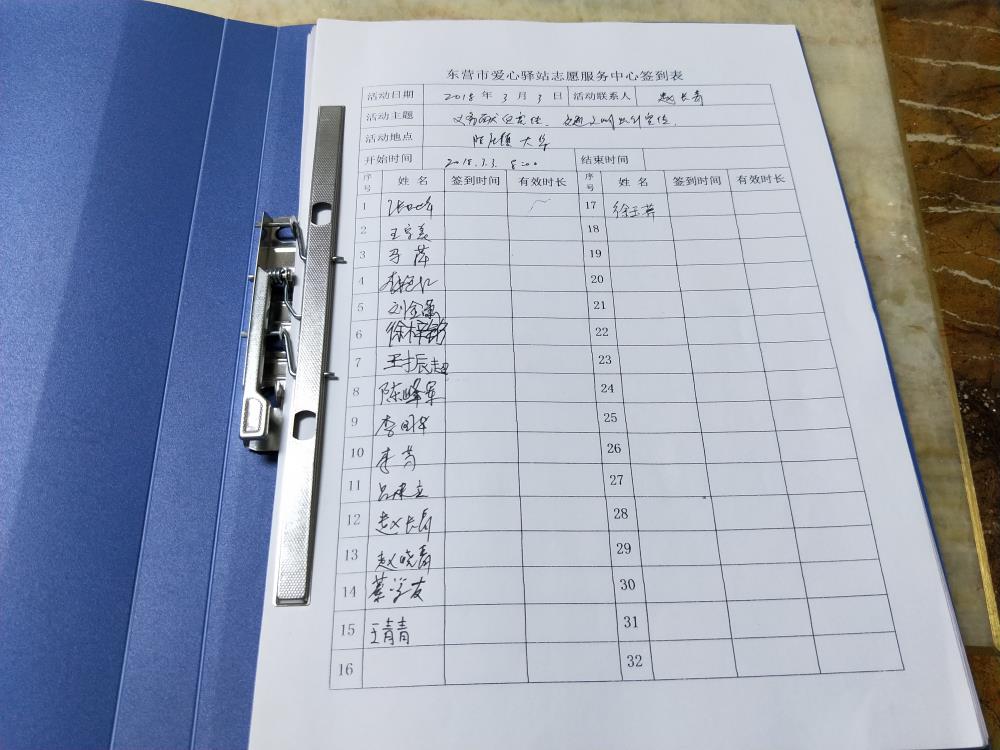 东营市爱心驿站志愿服务中心签到表
活动日期 2018 年 3 月 3 日 活动联系人 赵长青
活动主题 义务献血宣传、交通文明出行宣传
活动地点 大华
开始时间 2018.3.3. 8:00 结束时间
序号 姓名 签到时间 有效时长 序号 姓名 签到时间 有效时长
1 17 徐玉萍
2 王学美 18
3 马萍 19
4 20
5 刘金玺 21
6 徐梓铭 22
7 王振超 23
8 陈峰军 24
9 李明华 25
10 李芳 26
11 吕建立 27
12 赵长青 28
13 赵晓青 29
14 蔡学友 30
15 王青青 31
16 32